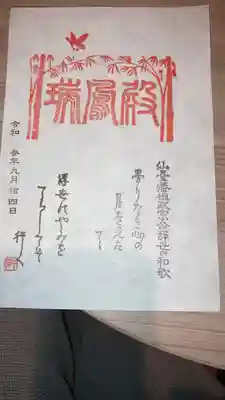 瑞鳳殿
仙臺藩祖政宗公辞世の和歌
曇りなき心の
月をさきた
てゝ
浮世のやみを
てらしてそ
行く
令和 参年九月拾四日